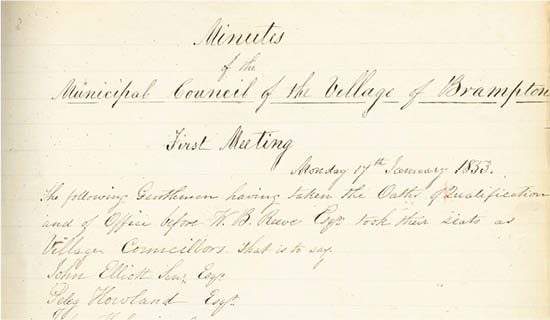 Minutes
of the
Municipal Council of the Village of Brampton
First Meeting
Monday 17th January 1853.
The following Gentlemen having taken the Oaths of Qualification
and of Office before W. B. Reeve Esqr. took their seats as
Village Councillors. That is to say.
John Elliott Senr. Esqr.
Peleg Howland Esqr.